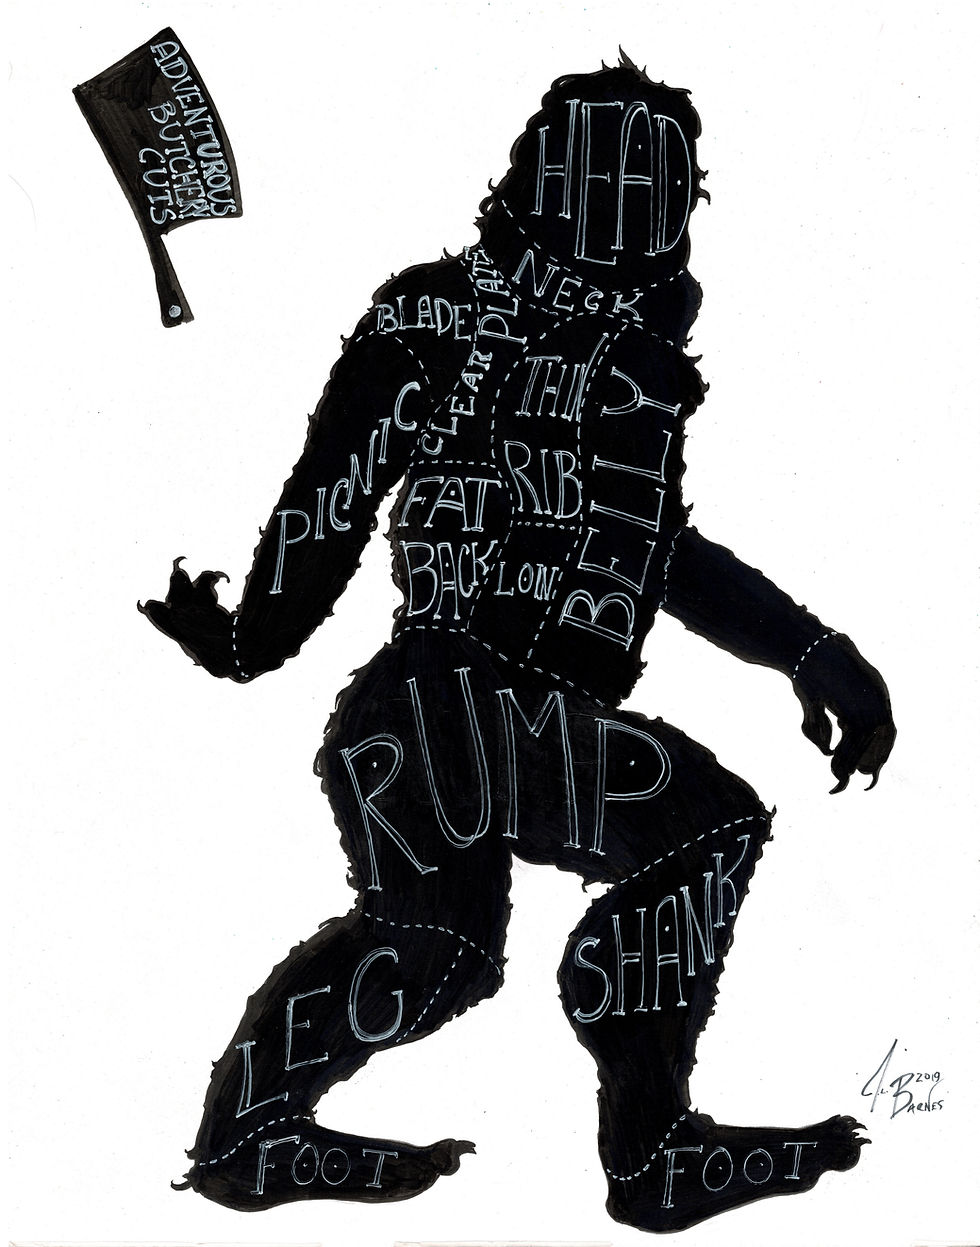 ADVENTUROUS
BUTCHER
CUTS
HEAD
NECK
BLADE
CLEAR PLATE
PICNIC
THIN
RIB
BELLY
FAT
BACK
LOIN
RUMP
SHANK
LEG
FOOT
FOOT
2019
BARNES